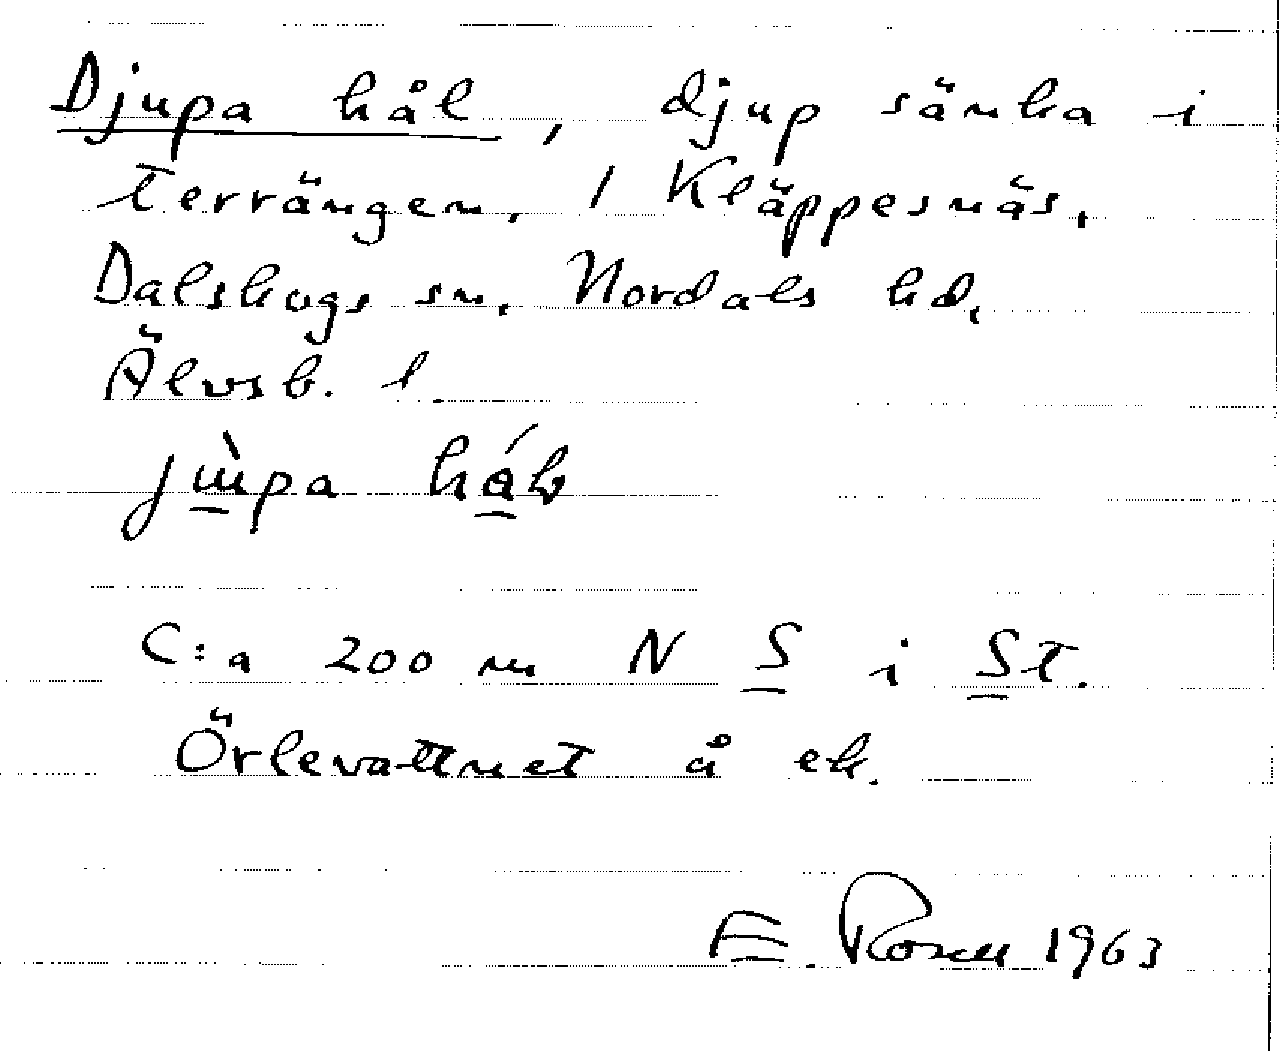 Djupa hål, djup sänka i
terrängen. / Kläppesnäs,
Dalskogs sn, Nordals hd,
Älvsb. l
C:a 200 m N S i St.
Örlevattnet å ek.
E. Rosell 1963